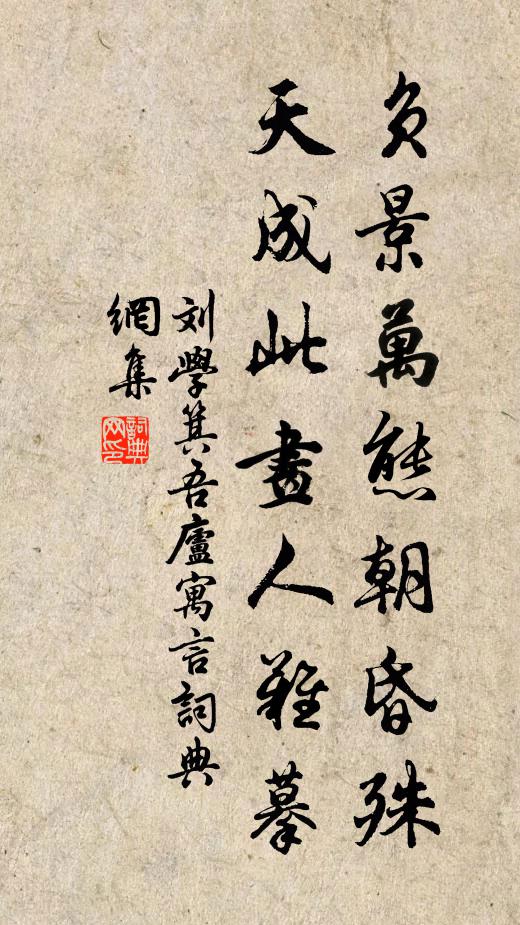 負景萬態朝昏殊
天成此畫人難摹
刘學箕吾廬寓言詞典
網集
詞典網印